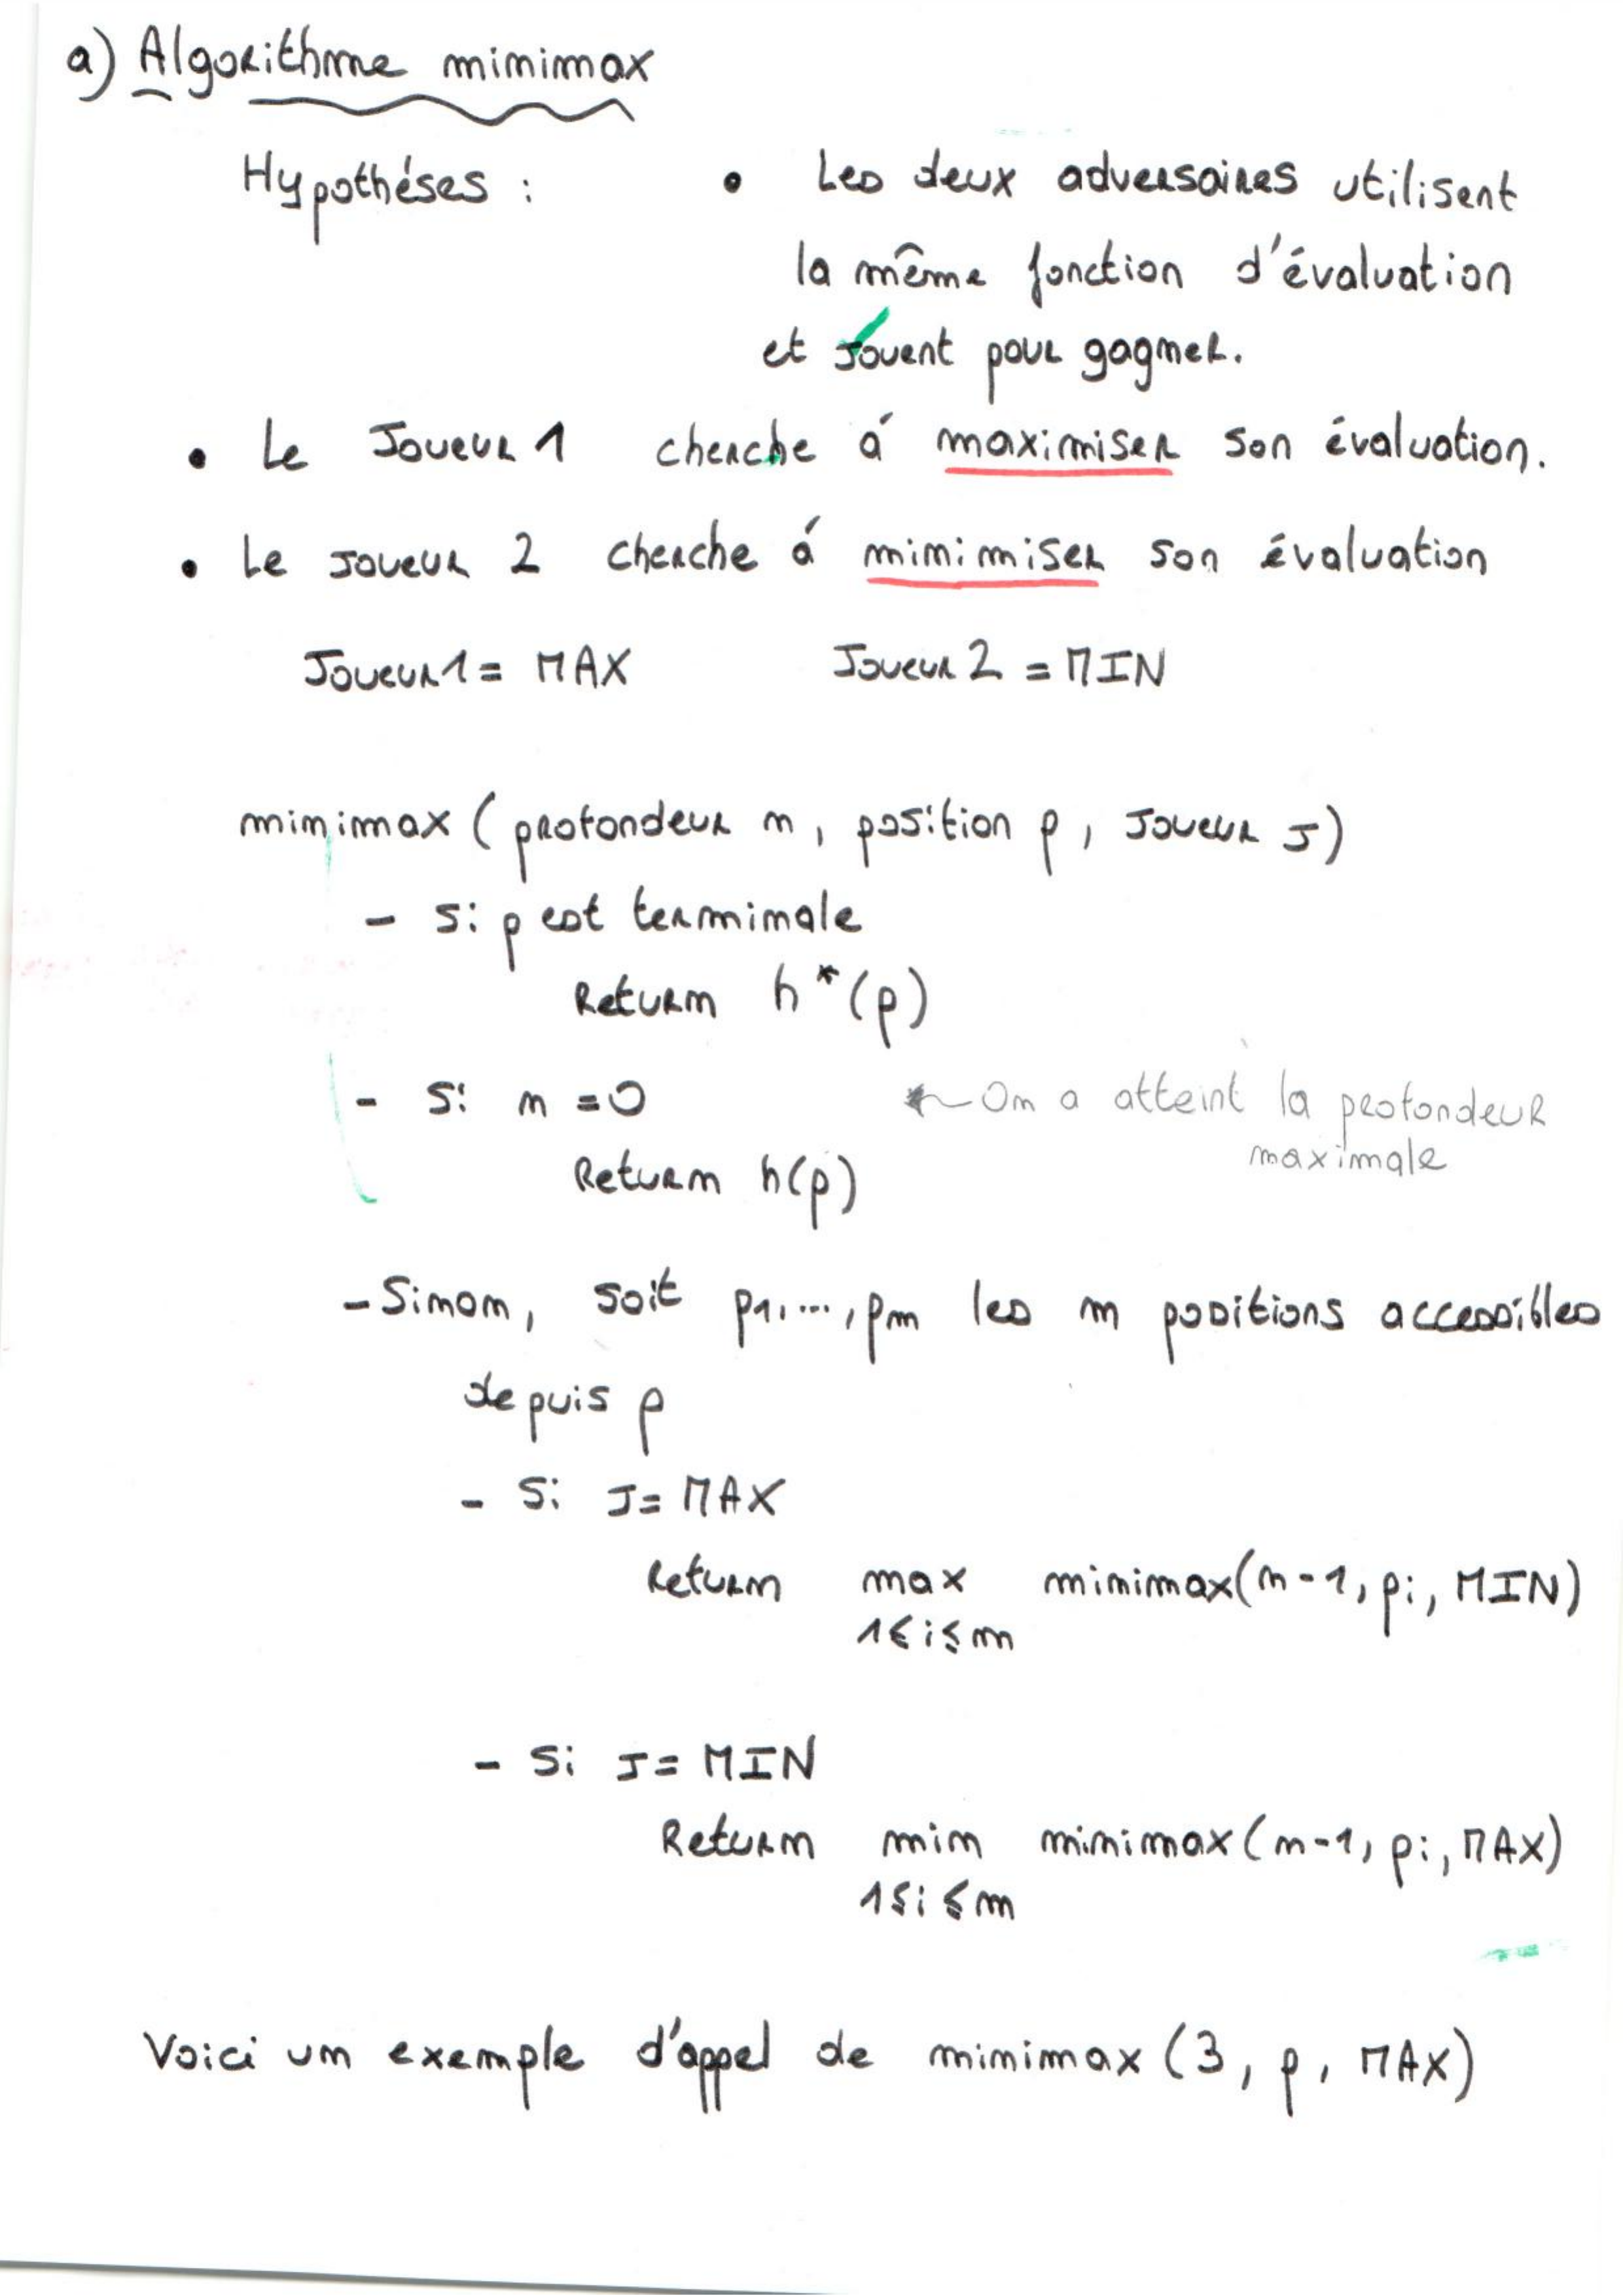 a) Algorithme minimax
Hypothéses : • Les deux adversaires utilisent
la même fonction d'évaluation
et jouent pour gagner.
• Le Joueur 1 cherche á maximiser son évaluation.
• Le joueur 2 cherche á minimiser son évaluation
Joueur 1 = MAX Joueur 2 = MIN
minimax ( profondeur n, position p, joueur J)
- Si p est terminale
Return h*(p)
- Si n = 0 ← On a atteint la profondeur
maximale
Return h(p)
- Sinon, soit p1, ..., pm les m positions accessibles
depuis p
- Si J = MAX
Return max minimax(n-1, pi, MIN)
1≤i≤m
- Si J = MIN
Return min minimax(n-1, pi, MAX)
1≤i≤m
Voici un exemple d'appel de minimax (3, p, MAX)